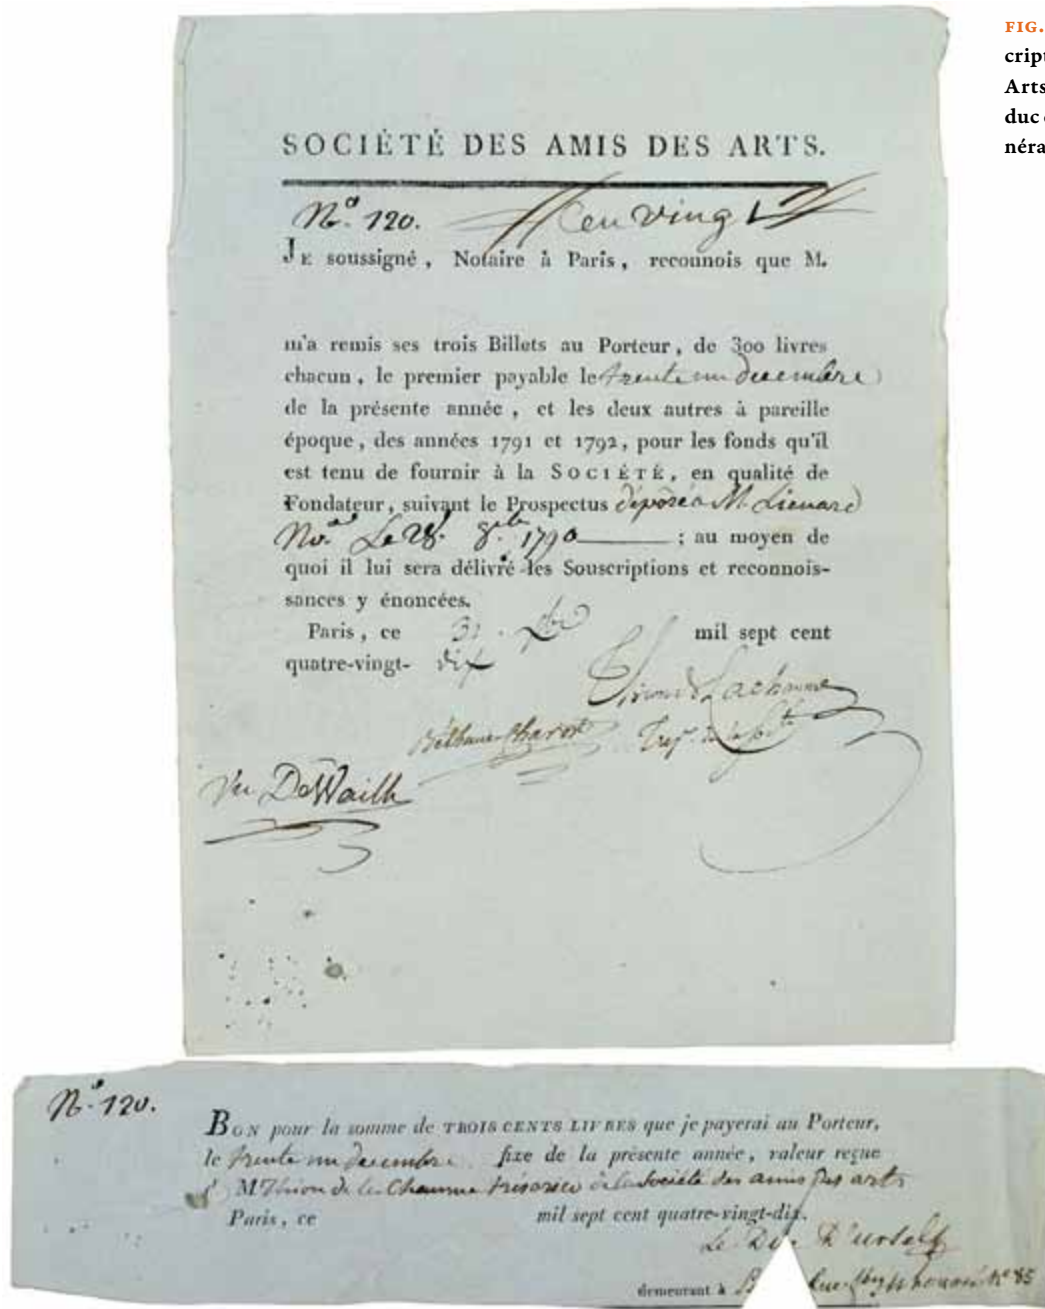 FIG.
Arts
duc
SOCIÉTÉ DES AMIS DES ARTS.
No. 120. Cen Vingt
JE soussigné, Notaire à Paris, reconnois que M.
m'a remis ses trois Billets au Porteur, de 300 livres
chacun, le premier payable le trente un decembre
de la présente année, et les deux autres à pareille
époque, des années 1791 et 1792, pour les fonds qu'il
est tenu de fournir à la SOCIÉTÉ, en qualité de
Fondateur, suivant le Prospectus déposé a M. Lienard
No.re Le 28. 8bre 1790 ; au moyen de
quoi il lui sera délivré les Souscriptions et reconnois-
sances y énoncées.
Paris, ce 31. Xbre mil sept cent
quatre-vingt- dix
Thiron de Lachaume
Béthune Charost Trés. de la Sté
Vu De Wailly
No. 120.
BON pour la somme de TROIS CENTS LIVRES que je payerai au Porteur,
le trente un decembre fixe de la présente année, valeur reçue
M Thiron de la Chaume trésorier de la Societé des amis des arts
Paris, ce mil sept cent quatre-vingt-dix.
Le Duc D'ursel
demeurant à Rue No 85